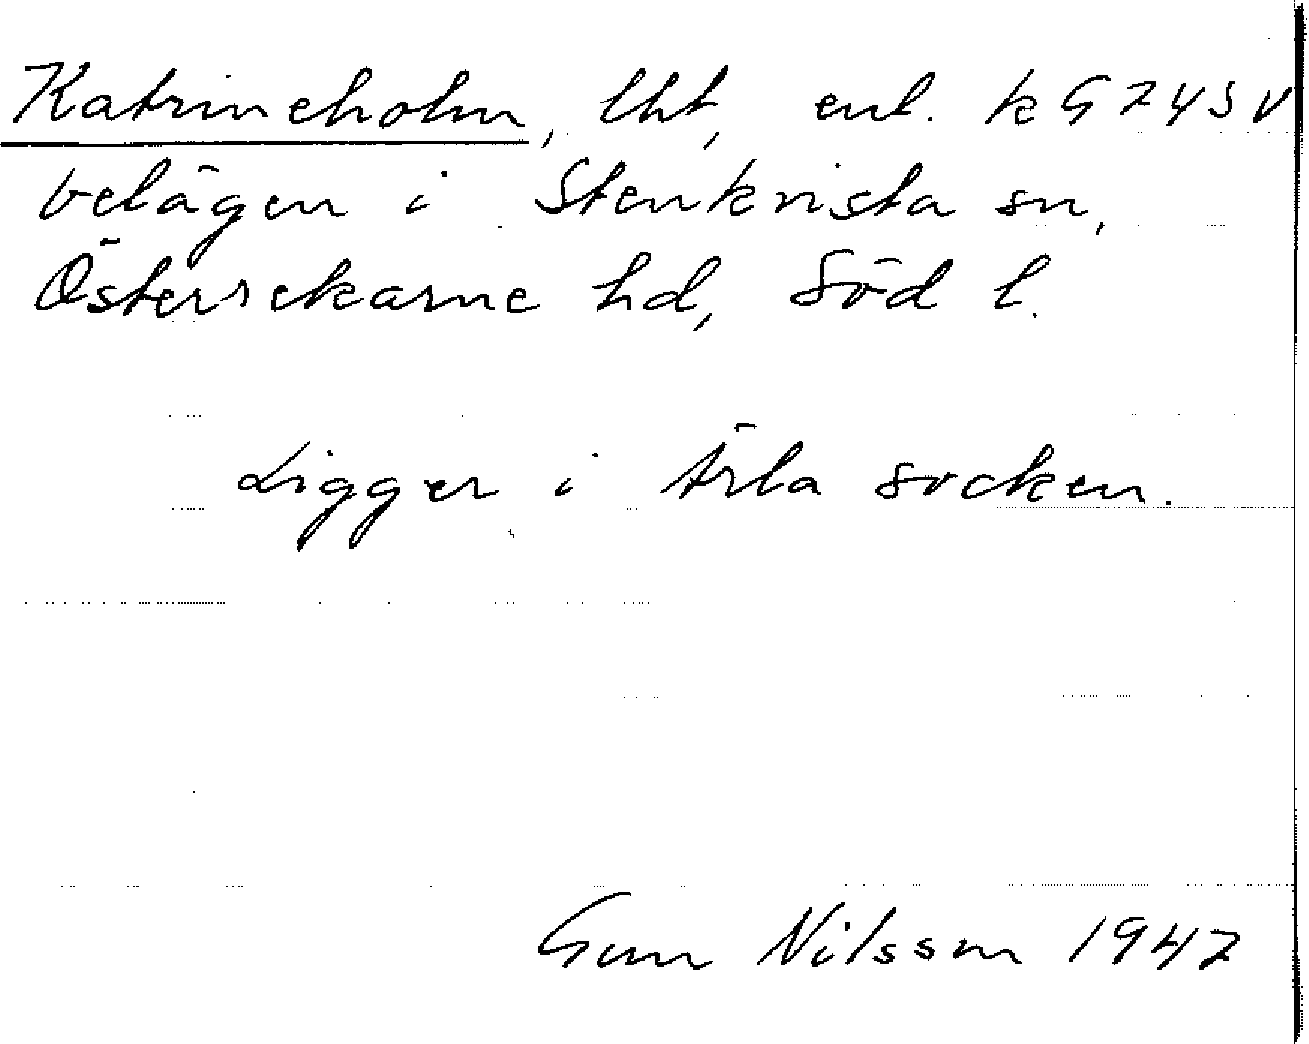 Katrineholm, lht, enl. k G 7 4 S V
belägen i Stenkvista sn,
Österrekarne hd, Söd l.
Ligger i Ärla socken.
Gun Nilsson 1947